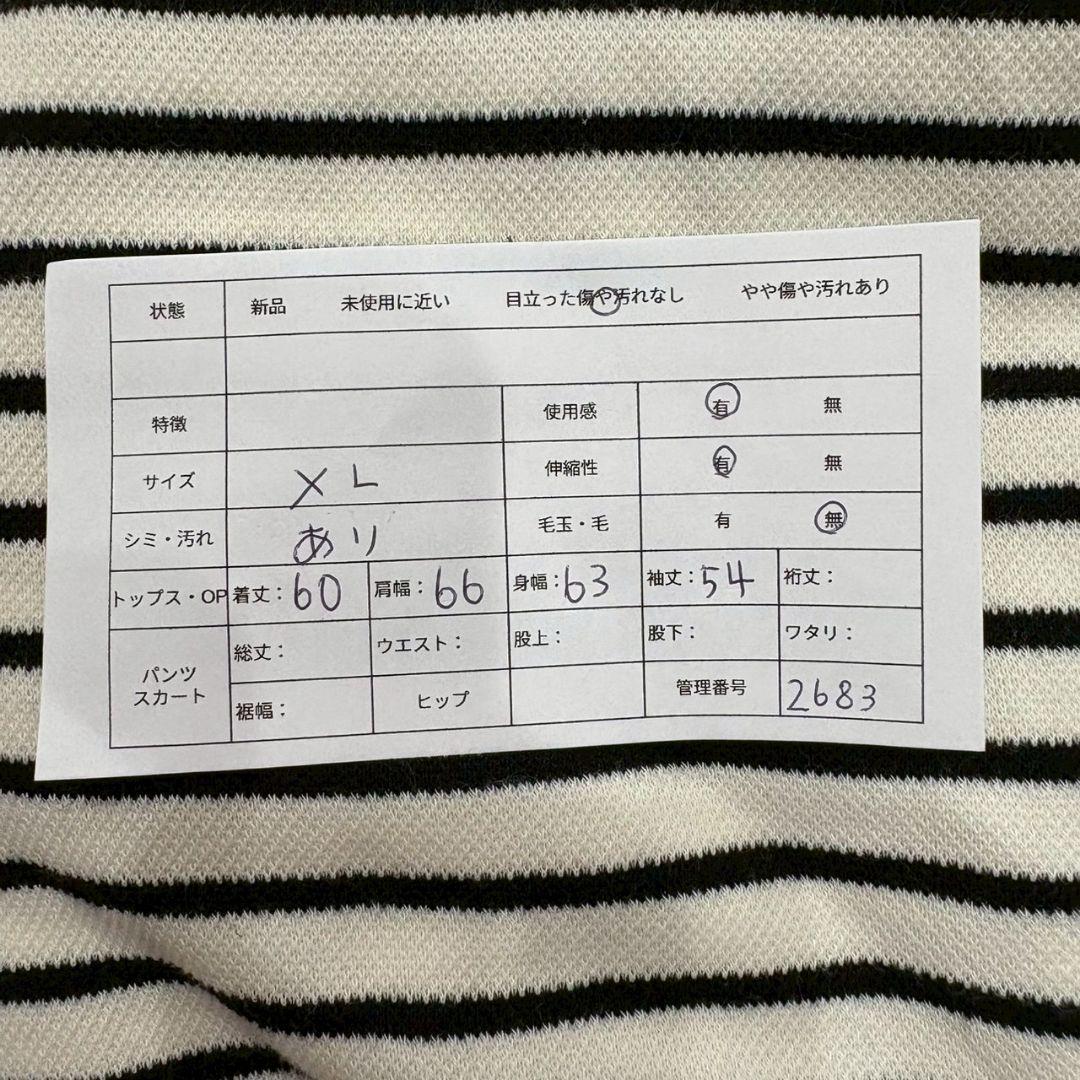 状態 新品 未使用に近い 目立った傷や汚れなし やや傷や汚れあり
特徴 使用感 有 無
サイズ XL 伸縮性 有 無
シミ・汚れ あり 毛玉・毛 有 無
トップス・OP 着丈：60 肩幅：66 身幅：63 袖丈：54 裄丈：
パンツ
スカート
総丈： ウエスト： 股上： 股下： ワタリ：
裾幅： ヒップ 管理番号 2683